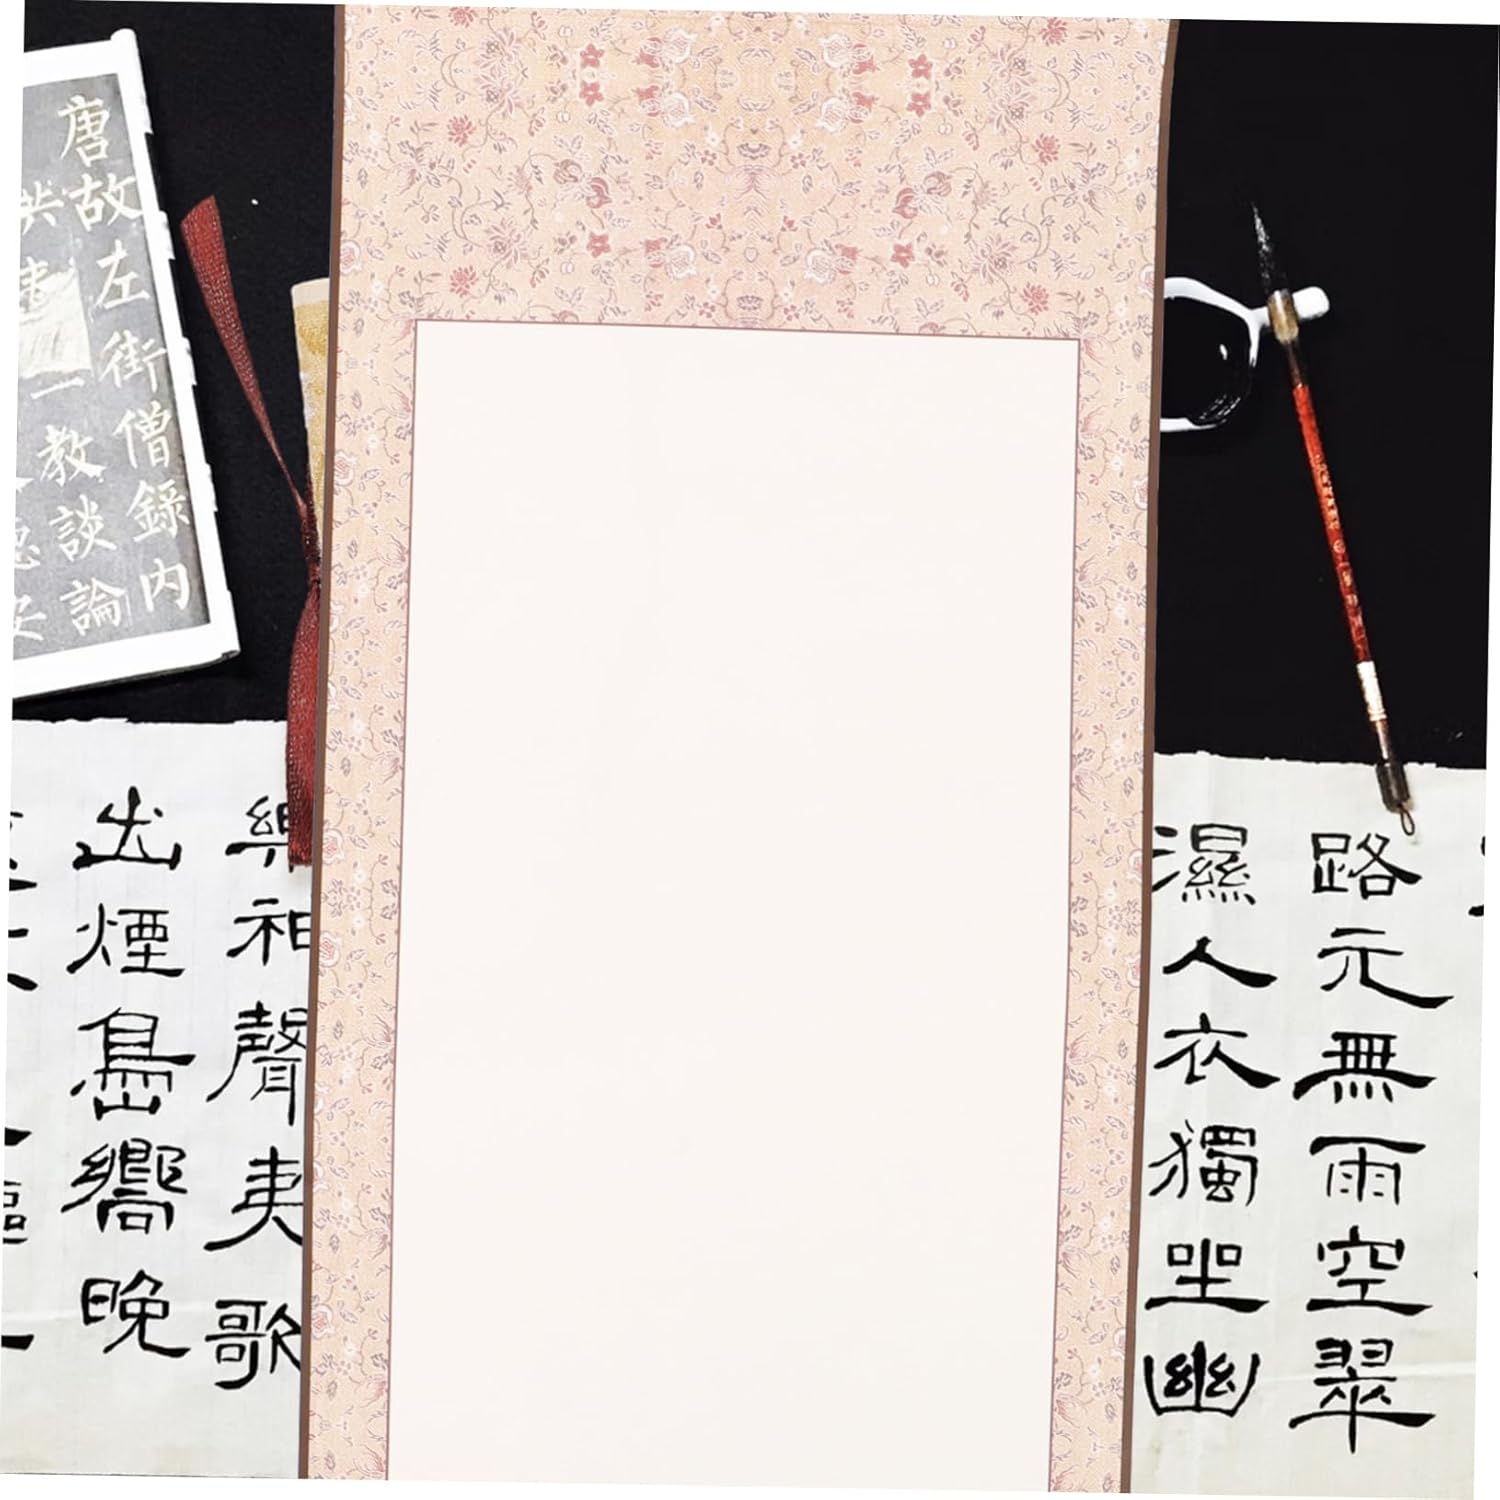 唐故左街僧錄內
教談論
路元無雨空翠
濕人衣獨坐幽
聲夷歌
出煙島嚮晚